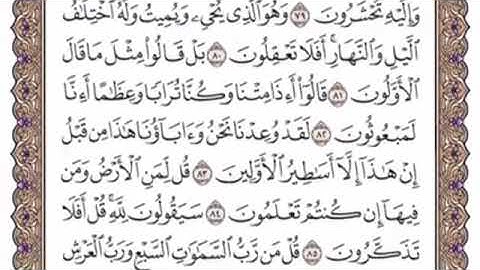 وَإِلَيْهِ تُحْشَرُونَ ٧٩ وَهُوَ ٱلَّذِى يُحْىِۦ وَيُمِيتُ وَلَهُ ٱخْتِلَٰفُ
ٱلَّيْلِ وَٱلنَّهَارِ ۚ أَفَلَا تَعْقِلُونَ ٨٠ بَلْ قَالُوا۟ مِثْلَ مَا قَالَ
ٱلْأَوَّلُونَ ٨١ قَالُوٓا۟ أَءِذَا مِتْنَا وَكُنَّا تُرَابًا وَعِظَٰمًا أَءِنَّا
لَمَبْعُوثُونَ ٨٢ لَقَدْ وُعِدْنَا نَحْنُ وَءَابَآؤُنَا هَٰذَا مِن قَبْلُ
إِنْ هَٰذَآ إِلَّآ أَسَٰطِيرُ ٱلْأَوَّلِينَ ٨٣ قُل لِّمَنِ ٱلْأَرْضُ وَمَن
فِيهَآ إِن كُنتُمْ تَعْلَمُونَ ٨٤ سَيَقُولُونَ لِلَّهِ ۚ قُلْ أَفَلَا
تَذَكَّرُونَ ٨٥ قُلْ مَن رَّبُّ ٱلسَّمَٰوَٰتِ ٱلسَّبْعِ وَرَبُّ ٱلْعَرْشِ